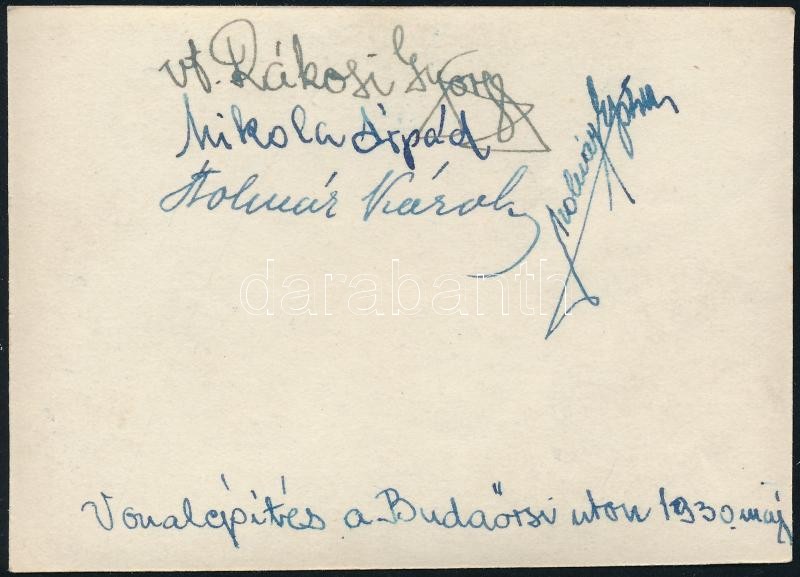 vt. Rákosi György
Mikola Árpád
Holmár Károly
Molnár
darabanth
Vonalépítés a Budaörsi uton 1930. máj